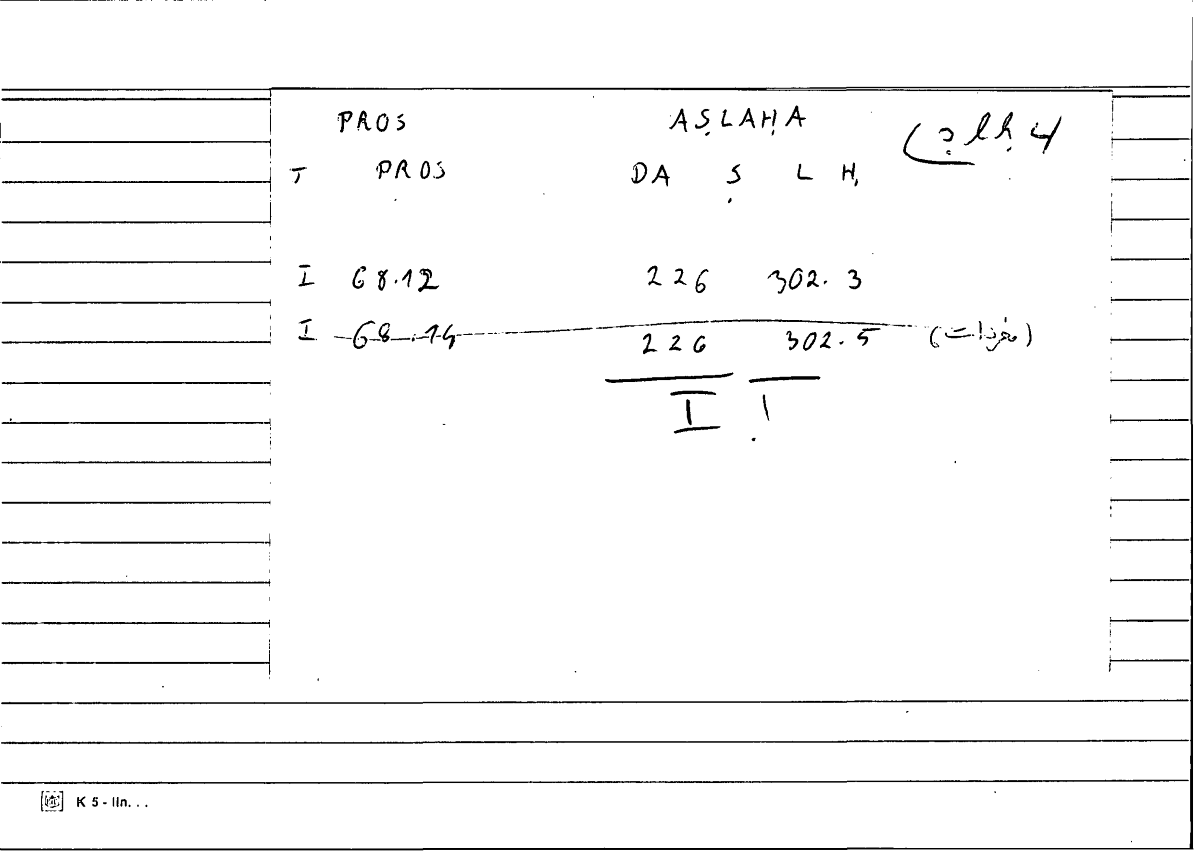 PROS AṢLAḤA ṣlḥ 4
T PROS DA Ṣ L Ḥ
I 68.12 226 302.3
I 68.14 226 302.5 (مفردات)
I
K 5 - lin. . .